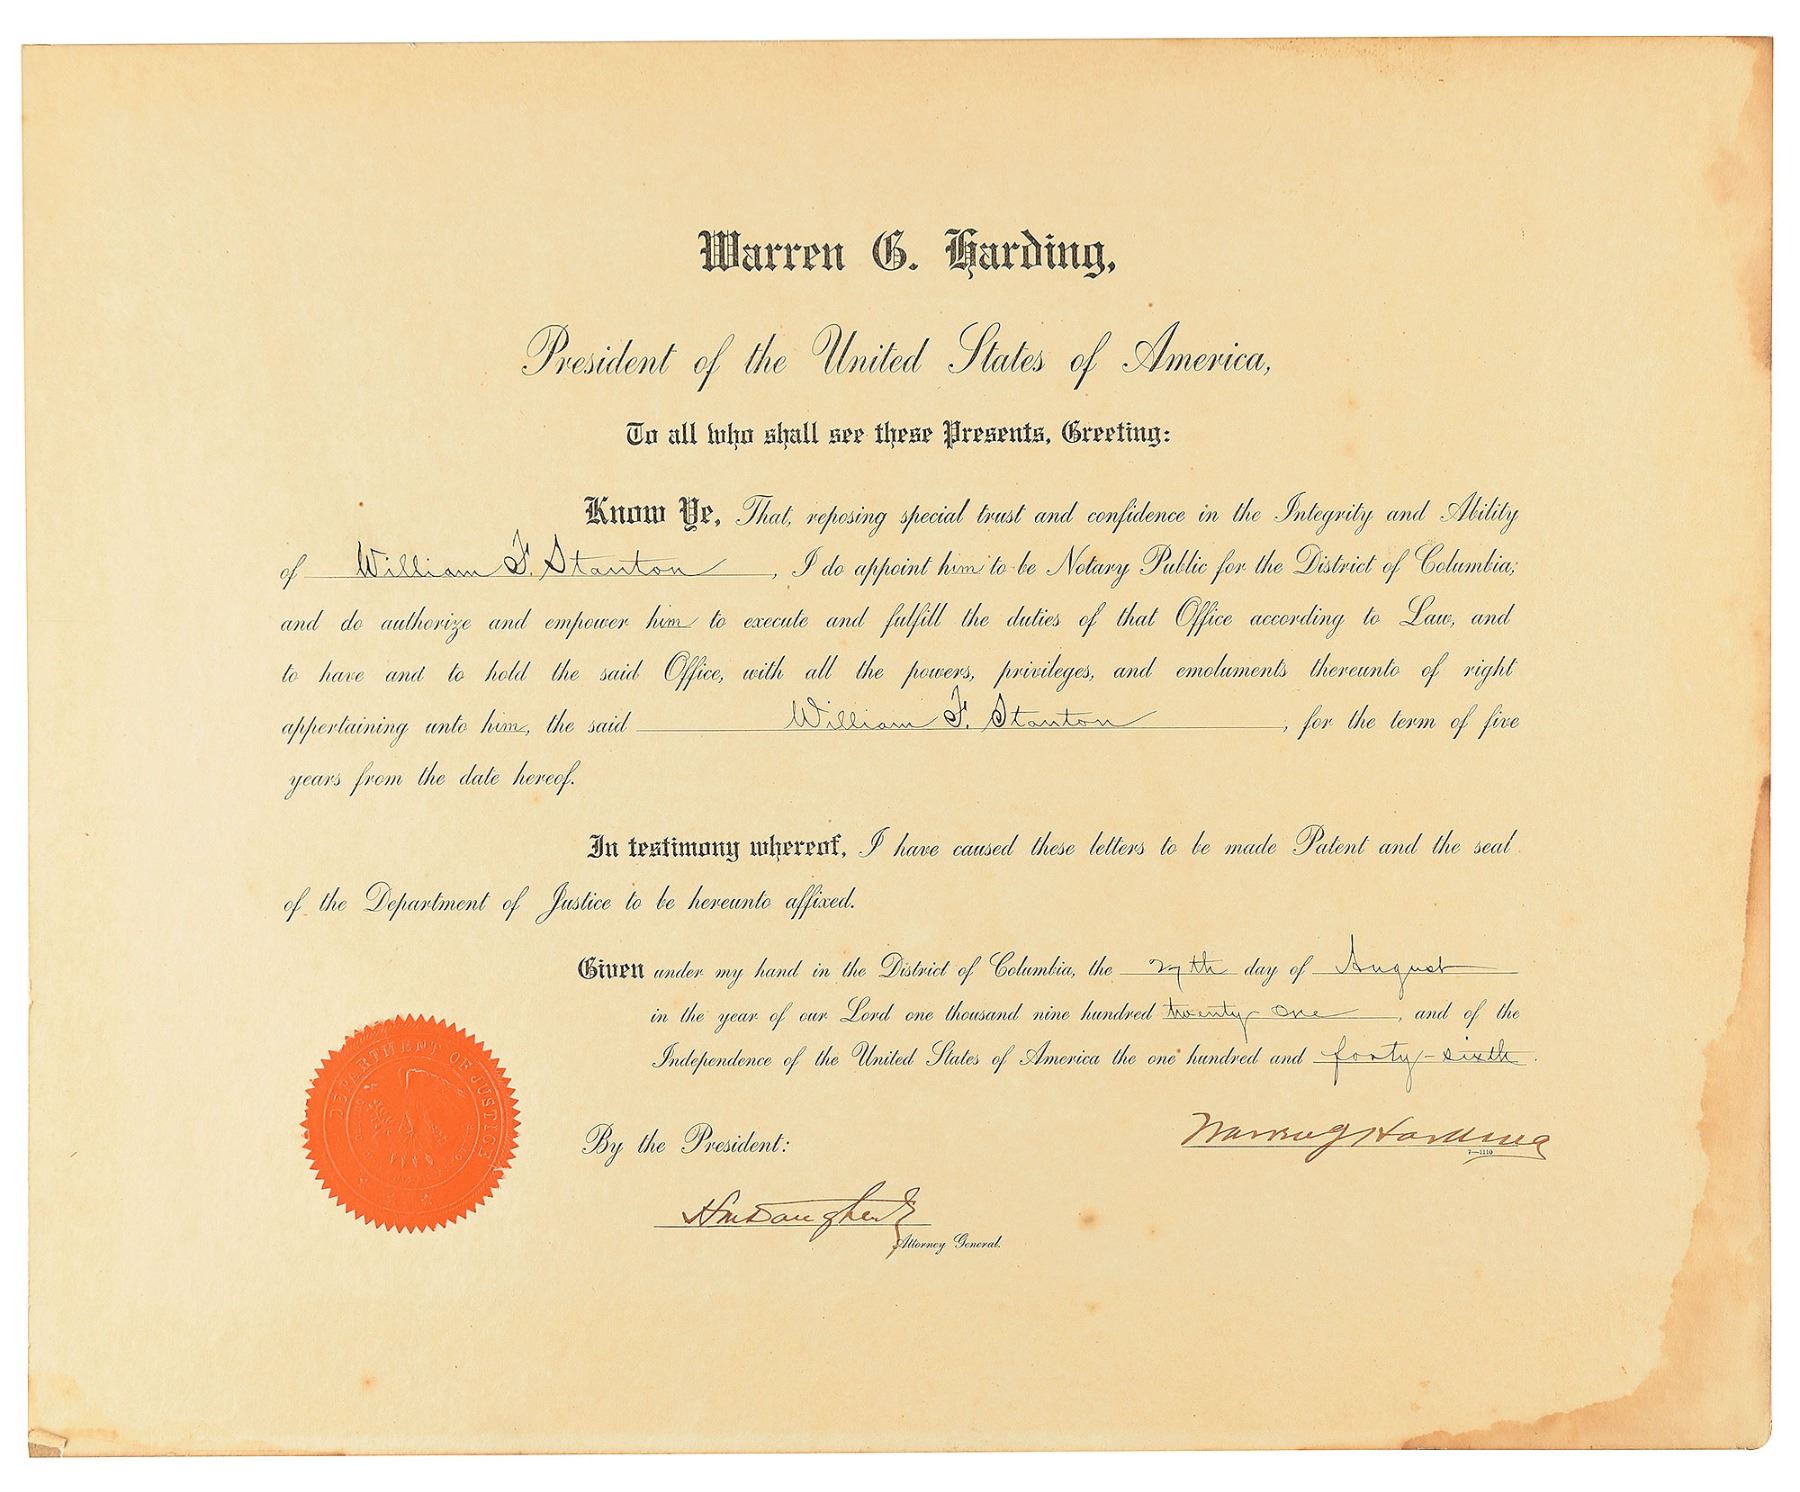 Warren G. Harding,
President of the United States of America,
To all who shall see these Presents, Greeting:
Know Ye, That, reposing special trust and confidence in the Integrity and Ability
of William F. Stanton, I do appoint him to be Notary Public for the District of Columbia;
and do authorize and empower him to execute and fulfill the duties of that Office according to Law, and
to have and to hold the said Office, with all the powers, privileges, and emoluments thereunto of right
appertaining unto him, the said William F. Stanton, for the term of five
years from the date hereof.
In testimony whereof, I have caused these letters to be made Patent and the seal
of the Department of Justice to be hereunto affixed.
Given under my hand in the District of Columbia, the 27th day of August
in the year of our Lord one thousand nine hundred twenty-one, and of the
Independence of the United States of America the one hundred and forty-sixth.
DEPARTMENT OF JUSTICE
By the President:
Warren G Harding
7—1110
HM Daugherty
Attorney General.